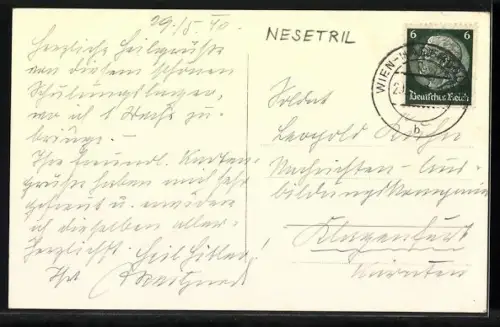 29./5. 40.
Herzliche Heilgrüße
von diesem schönen
Schulungslager,
wo ich 1 Woche zu-
bringe.
Ihre freundl. Karten-
grüße haben mich sehr
gefreut u.
ich dieselben aller-
herzlichst. Heil Hitler!
Ihr
NESETRIL
6 6
Deutsches Reich
WIEN-
b
Soldat
Leopold
Nachrichten-Aus-
bildungskompanie
Klagenfurt
Kärnten